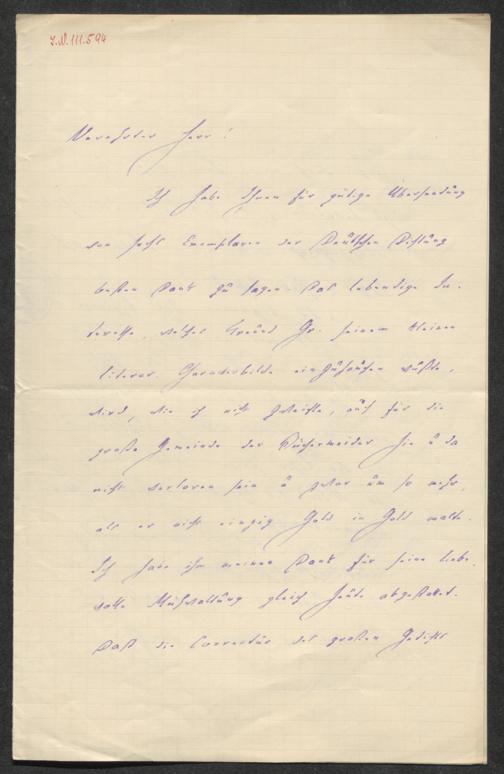 I.N. 111.594
Verehrter Herr!
Ich habe Ihnen für gütige Übersendung
von sechs Exemplaren der Deutschen Dichtung
besten Dank zu sagen. Das lebendige In-
teresse, welches Freund Gr. seinem kleinen
literar. Charakterbilde einzuhauchen wußte,
wird, wie ich nicht zweifle, auch für die
große Gemeinde der Büchermeider hie u da
nicht verloren sein u zwar um so mehr,
als er nicht einzig Gold in Gold malte.
Ich habe ihm meinen Dank für seine liebe-
volle Mühwaltung gleich heute abgestattet.
Daß die Correctur des großen Gedichts